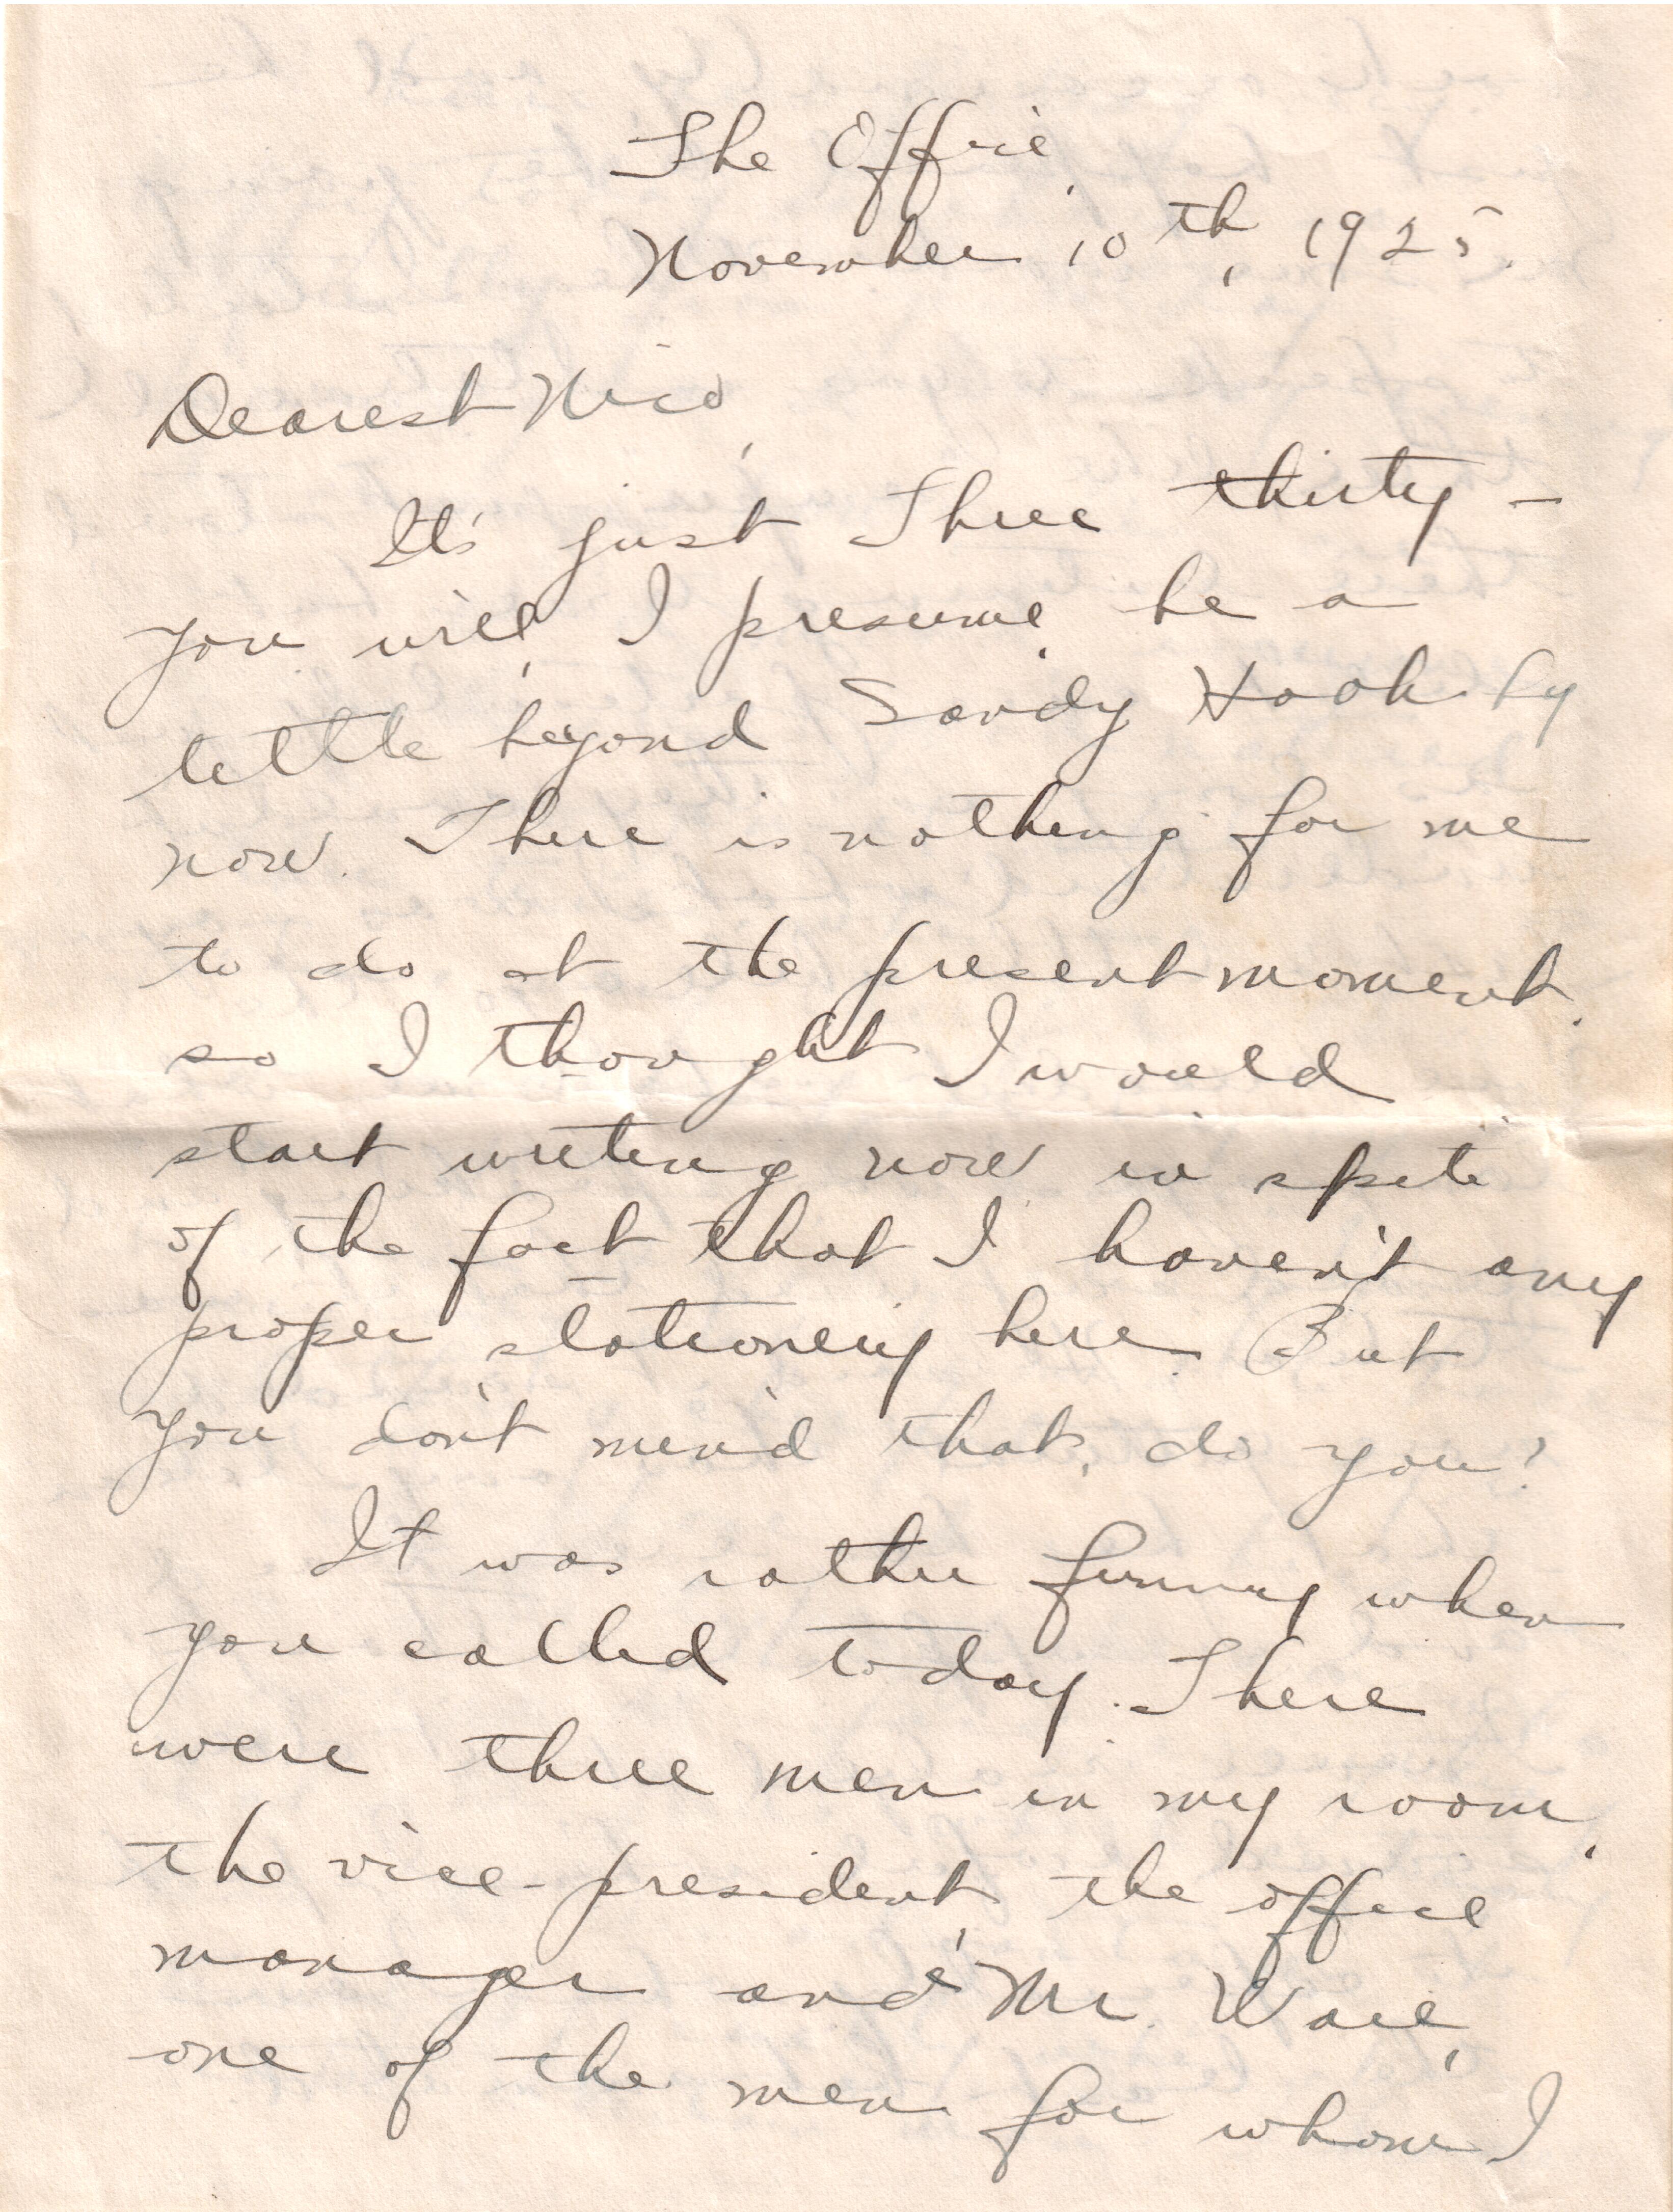 The Office,
November 10th, 1925.
Dearest Nico,
It's just Three thirty –
you will, I presume, be a
little beyond Sandy Hook by
now. There is nothing for me
to do at the present moment,
so I thought I would
start writing now in spite
of the fact that I haven't any
proper stationery here. But
you don't mind that, do you?
It was rather funny when
you called today. There
were three men in my room,
the vice-president, the office
manager and Mr. Ware,
one of the men for whom I